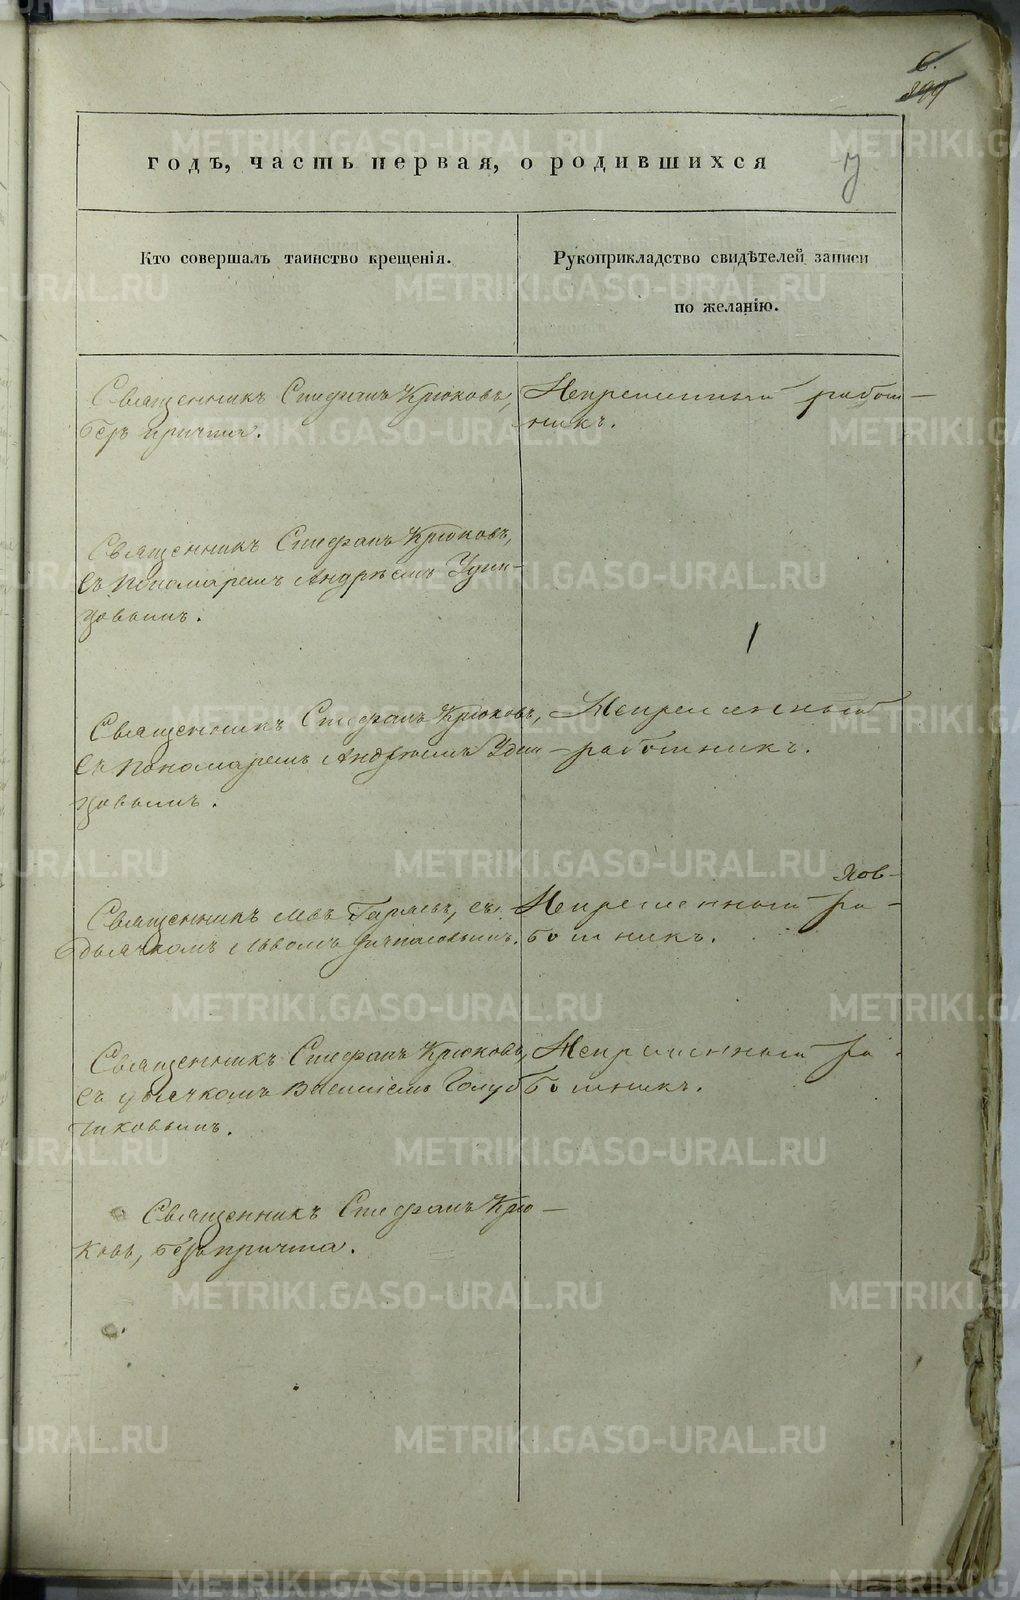 6.
годъ, часть первая, о родившихся
7
Кто совершалъ таинство крещенія.
Рукоприкладство свидѣтелей записи
по желанію.
Священникъ Стефанъ Крюковъ,
безъ причта.
Непременный работ—
никъ.
Священникъ Стефанъ Крюковъ,
съ пономаремъ Андреемъ Удин—
цовымъ.
Священникъ Стефанъ Крюковъ,
съ пономаремъ Андреемъ Удин—
цовымъ.
Непременный
работникъ.
Священникъ Гаряевъ, съ
дьячкомъ Львомъ
Непременный ра—
ботникъ.
Священникъ Стефанъ Крюковъ,
съ дьячкомъ Василіемъ Голуб
чиковымъ.
Непременный ра-
ботникъ.
Священникъ Стефанъ Крю—
ковъ, безъ причта.
METRIKI.GASO-URAL.RU